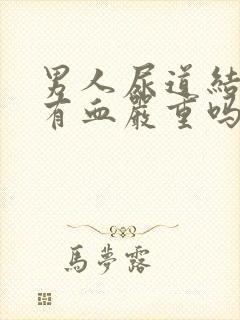 男人尿道結
有血嚴重嗎
馬夢露